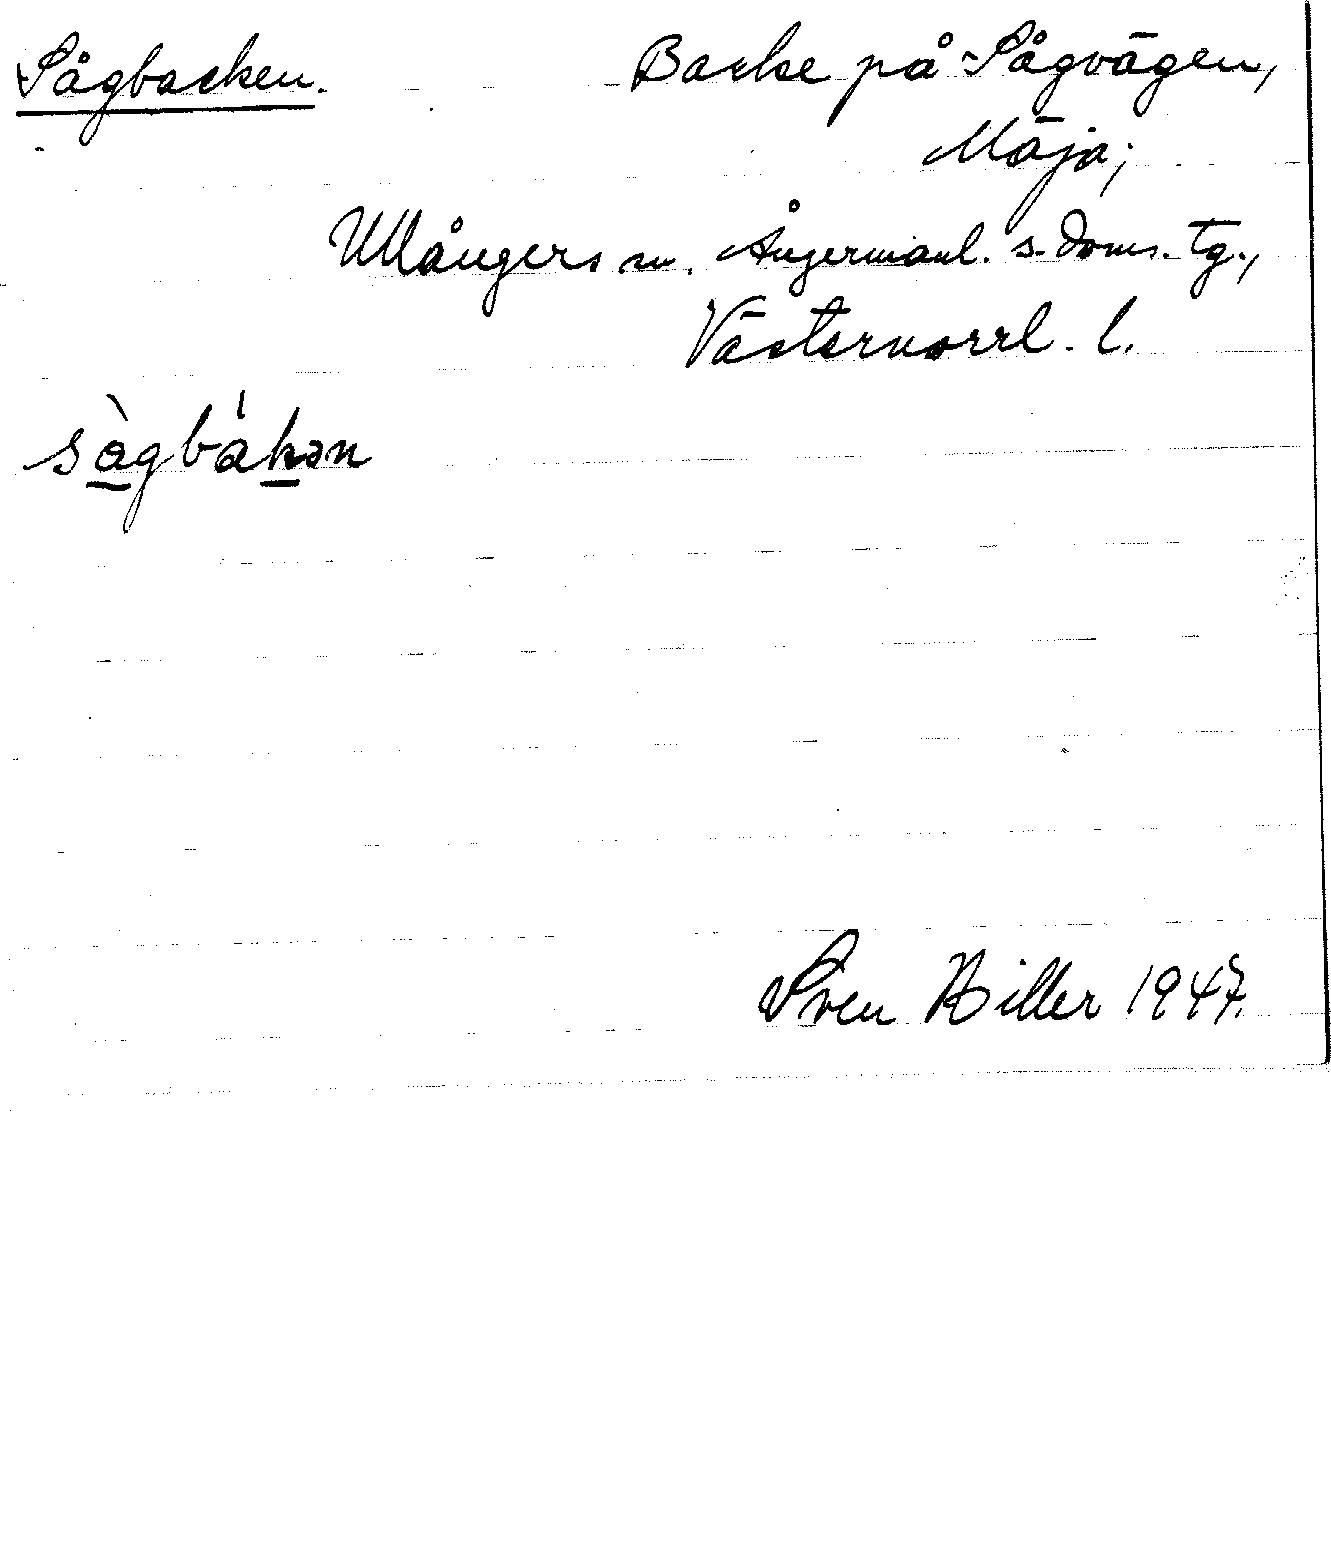 Sågbacken. Backe på Sågvägen,
Mäja;
Ullångers sn. Ångermanl. s. doms. tg.,
Västernorrl. l.
sàgbákən
Sven Hiller 1947.